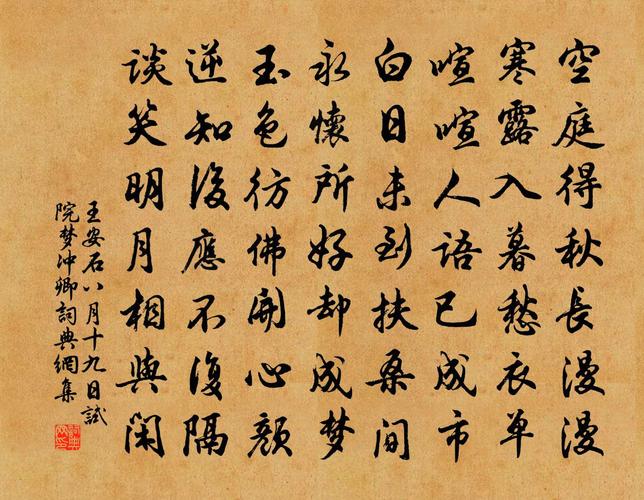 空庭得秋長漫漫
寒露入暮愁衣單
喧喧人語已成市
白日未到扶桑間
永懷所好却成夢
玉色彷佛開心顏
逆知後應不復隔
談笑明月相與閑
王安石八月十九日試
院梦冲卿詞典網集